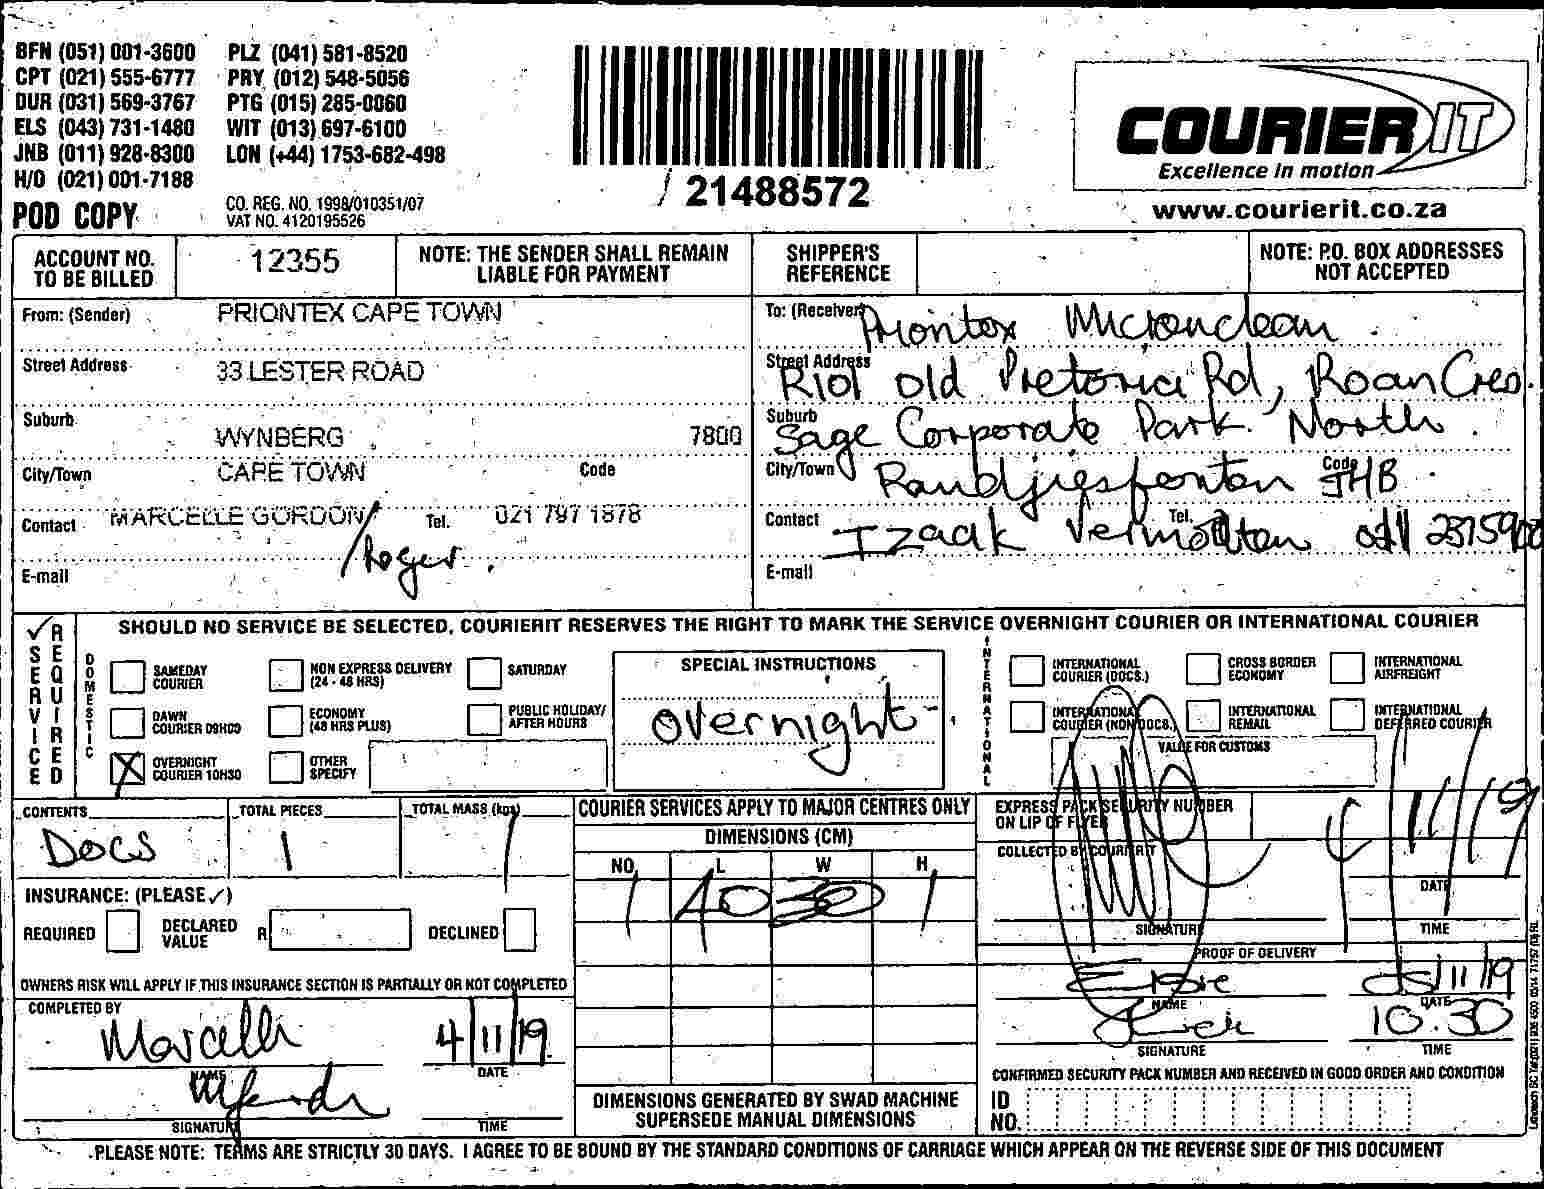 BFN (051) 001-3600 PLZ (041) 581-8520
CPT (021) 555-6777 PRY (012) 548-5056
DUR (031) 569-3767 PTG (015) 285-0060
ELS (043) 731-1480 WIT (013) 697-6100
JNB (011) 928-8300 LON (+44) 1753-682-498
H/O (021) 001-7188
POD COPY
CO. REG. NO. 1998/010351/07
VAT NO. 4120195526
21488572
COURIER IT
Excellence in motion
www.courierit.co.za
ACCOUNT NO. TO BE BILLED 12355
NOTE: THE SENDER SHALL REMAIN LIABLE FOR PAYMENT
SHIPPER'S REFERENCE
NOTE: P.O. BOX ADDRESSES NOT ACCEPTED
From: (Sender) PRIONTEX CAPE TOWN
Street Address 33 LESTER ROAD
Suburb WYNBERG 7800
City/Town CAPE TOWN Code
Contact MARCELLE GORDON Tel. 021 797 1878
/Roger
E-mail
To: (Receiver) Priontex Micronclean
Street Address R101 Old Pretoria Rd, Roan Cres.
Suburb Sage Corporate Park North
City/Town Randjiesfontein Code JHB
Contact Izaak Tel.
E-mail
✓ SERVICE REQUIRED
SHOULD NO SERVICE BE SELECTED, COURIERIT RESERVES THE RIGHT TO MARK THE SERVICE OVERNIGHT COURIER OR INTERNATIONAL COURIER
DOMESTIC
SAMEDAY COURIER
NON EXPRESS DELIVERY (24 - 48 HRS)
SATURDAY
DAWN COURIER 09H00
ECONOMY (48 HRS PLUS)
PUBLIC HOLIDAY/ AFTER HOURS
X OVERNIGHT COURIER 10H30
OTHER SPECIFY
SPECIAL INSTRUCTIONS
Overnight
INTERNATIONAL
INTERNATIONAL COURIER (DOCS.)
CROSS BORDER ECONOMY
INTERNATIONAL AIRFREIGHT
INTERNATIONAL COURIER (NON DOCS.)
INTERNATIONAL REMAIL
INTERNATIONAL DEFERRED COURIER
VALUE FOR CUSTOMS
CONTENTS Docs
TOTAL PIECES 1
TOTAL MASS (kgs) 1
INSURANCE: (PLEASE ✓)
REQUIRED DECLARED VALUE R DECLINED
OWNERS RISK WILL APPLY IF THIS INSURANCE SECTION IS PARTIALLY OR NOT COMPLETED
COMPLETED BY
Marcelle 4/11/19
NAME DATE
SIGNATURE TIME
COURIER SERVICES APPLY TO MAJOR CENTRES ONLY
DIMENSIONS (CM)
NO. L W H
1 40 30 1
DIMENSIONS GENERATED BY SWAD MACHINE SUPERSEDE MANUAL DIMENSIONS
EXPRESS PACK SECURITY NUMBER ON LIP OF FLYER
COLLECTED BY COURIERIT
4/11/19
DATE
SIGNATURE TIME
PROOF OF DELIVERY
Elsie 05/11/19
NAME DATE
10:30
SIGNATURE TIME
CONFIRMED SECURITY PACK NUMBER AND RECEIVED IN GOOD ORDER AND CONDITION
ID NO.
PLEASE NOTE: TERMS ARE STRICTLY 30 DAYS. I AGREE TO BE BOUND BY THE STANDARD CONDITIONS OF CARRIAGE WHICH APPEAR ON THE REVERSE SIDE OF THIS DOCUMENT